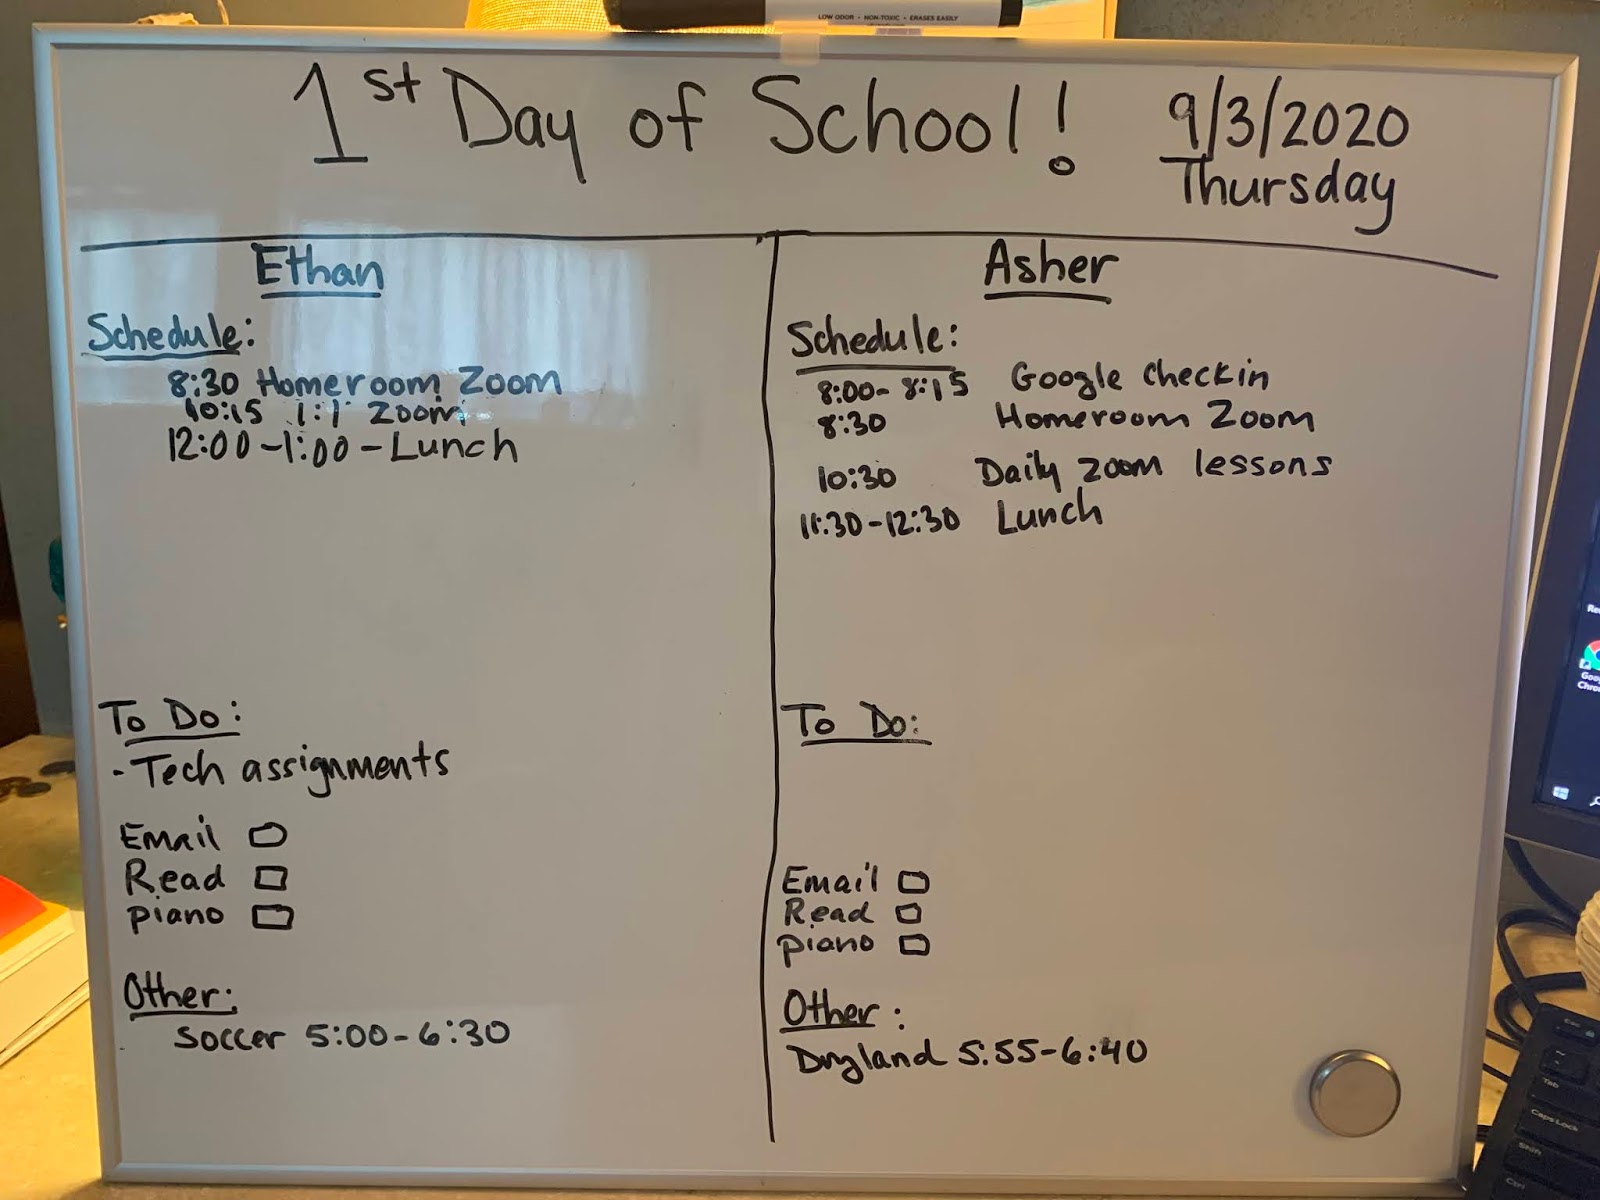 LOW ODOR • NON-TOXIC • ERASES EASILY
1st Day of School! 9/3/2020
Thursday
Ethan
Schedule:
8:30 Homeroom Zoom
10:15 1:1 Zoom
12:00-1:00 - Lunch
To Do:
- Tech assignments
Email
Read
piano
Other:
Soccer 5:00-6:30
Asher
Schedule:
8:00-8:15 Google checkin
8:30 Homeroom Zoom
10:30 Daily zoom lessons
11:30-12:30 Lunch
To Do:
Email
Read
piano
Other:
Dryland 5:55-6:40
Esc
Tab
Caps Lock
Shift
Ctrl